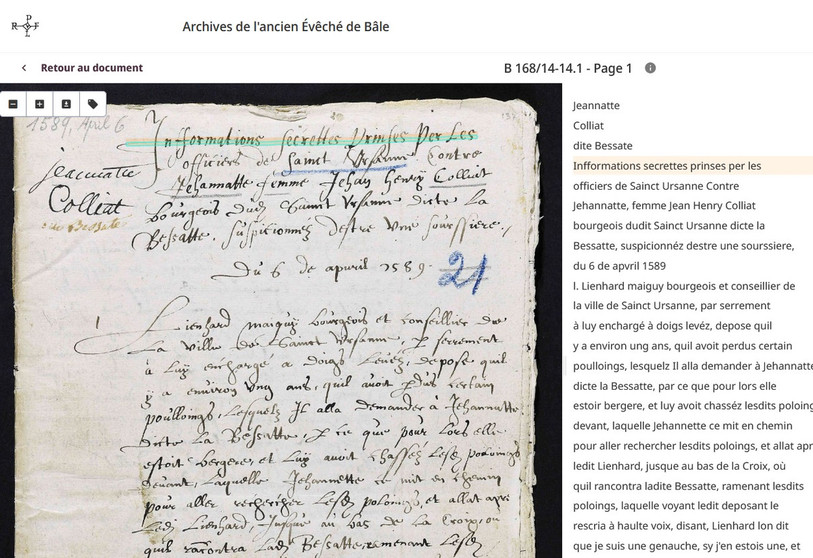 Archives de l'ancien Évêché de Bâle
Retour au document
B 168/14-14.1 - Page 1
1589, April 6
Jeannatte
Colliat
dite Bessate
Informations secrettes prinses per les
officiers de Sainct Ursanne Contre
Jehannatte femme Jehan Henry Colliat
bourgeois dudit Sainct Ursanne dicte la
Bessatte, suspicionnez destre une soursiere,
Du 6 de apvril 1589.
21
1
Lienhard maiguy bourgeois et conseillier de
la ville de Sainct Ursanne, per serrement
à luy enchargé a doigs levez, depose quil
y a environ ung ans, quil avoit perdus certain
poulloings, lesquelz Il alla demander à Jehannatte
dicte la Bessatte, per ce que pour lors elle
estoit bergere, et luy avoit chassez lesdits poloings
devant, laquelle Jehannette ce mit en chemin
pour aller rechercher lesdits poloings, et allat apres
ledit Lienhard, jusque au bas de la Croix, où
quil racontra ladite Bessatte, remenant lesdits
Jeannatte
Colliat
dite Bessate
Infformations secrettes prinses per les
officiers de Sainct Ursanne Contre
Jehannatte, femme Jean Henry Colliat
bourgeois dudit Sainct Ursanne dicte la
Bessatte, suspicionnéz destre une soursiere,
du 6 de apvril 1589
l. Lienhard maiguy bourgeois et conseillier de
la ville de Sainct Ursanne, par serrement
à luy enchargé à doigs levéz, depose quil
y a environ ung ans, quil avoit perdus certain
poulloings, lesquelz Il alla demander à Jehannatte
dicte la Bessatte, par ce que pour lors elle
estoir bergere, et luy avoit chasséz lesdits poloing
devant, laquelle Jehannette ce mit en chemin
pour aller rechercher lesdits poloings, et allat apr
ledit Lienhard, jusque au bas de la Croix, où
quil rancontra ladite Bessatte, ramenant lesdits
poloings, laquelle voyant ledit deposant le
rescria à haulte voix, disant, Lienhard lon dit
que je suis une genauche, sy j'en estois une, et